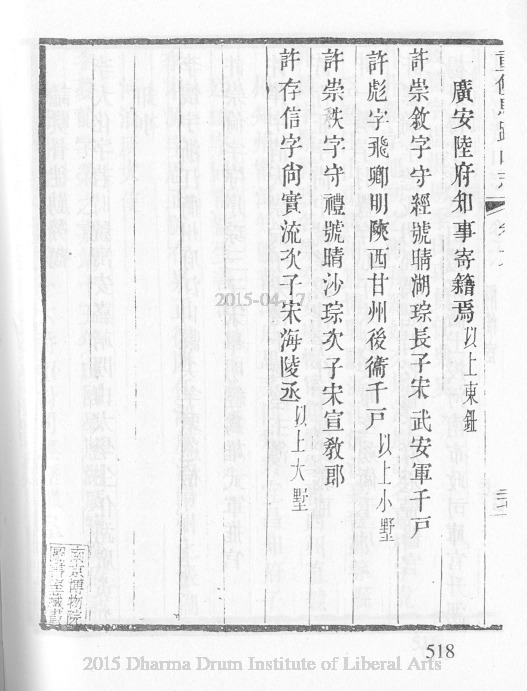 重修馬跡山志
廣安陸府知事寄籍焉以上東鈕
許崇敘字守經號晴湖琮長子宋武安軍千戶
許彪字飛卿明陝西甘州後衞千戶以上小墅
許崇秩字守禮號晴沙琮次子宋宣教郎
許存信字尙實流次子宋海陵丞以上大墅
南京博物院
圖書室藏書
2015-04-17
518
2015 Dharma Drum Institute of Liberal Arts